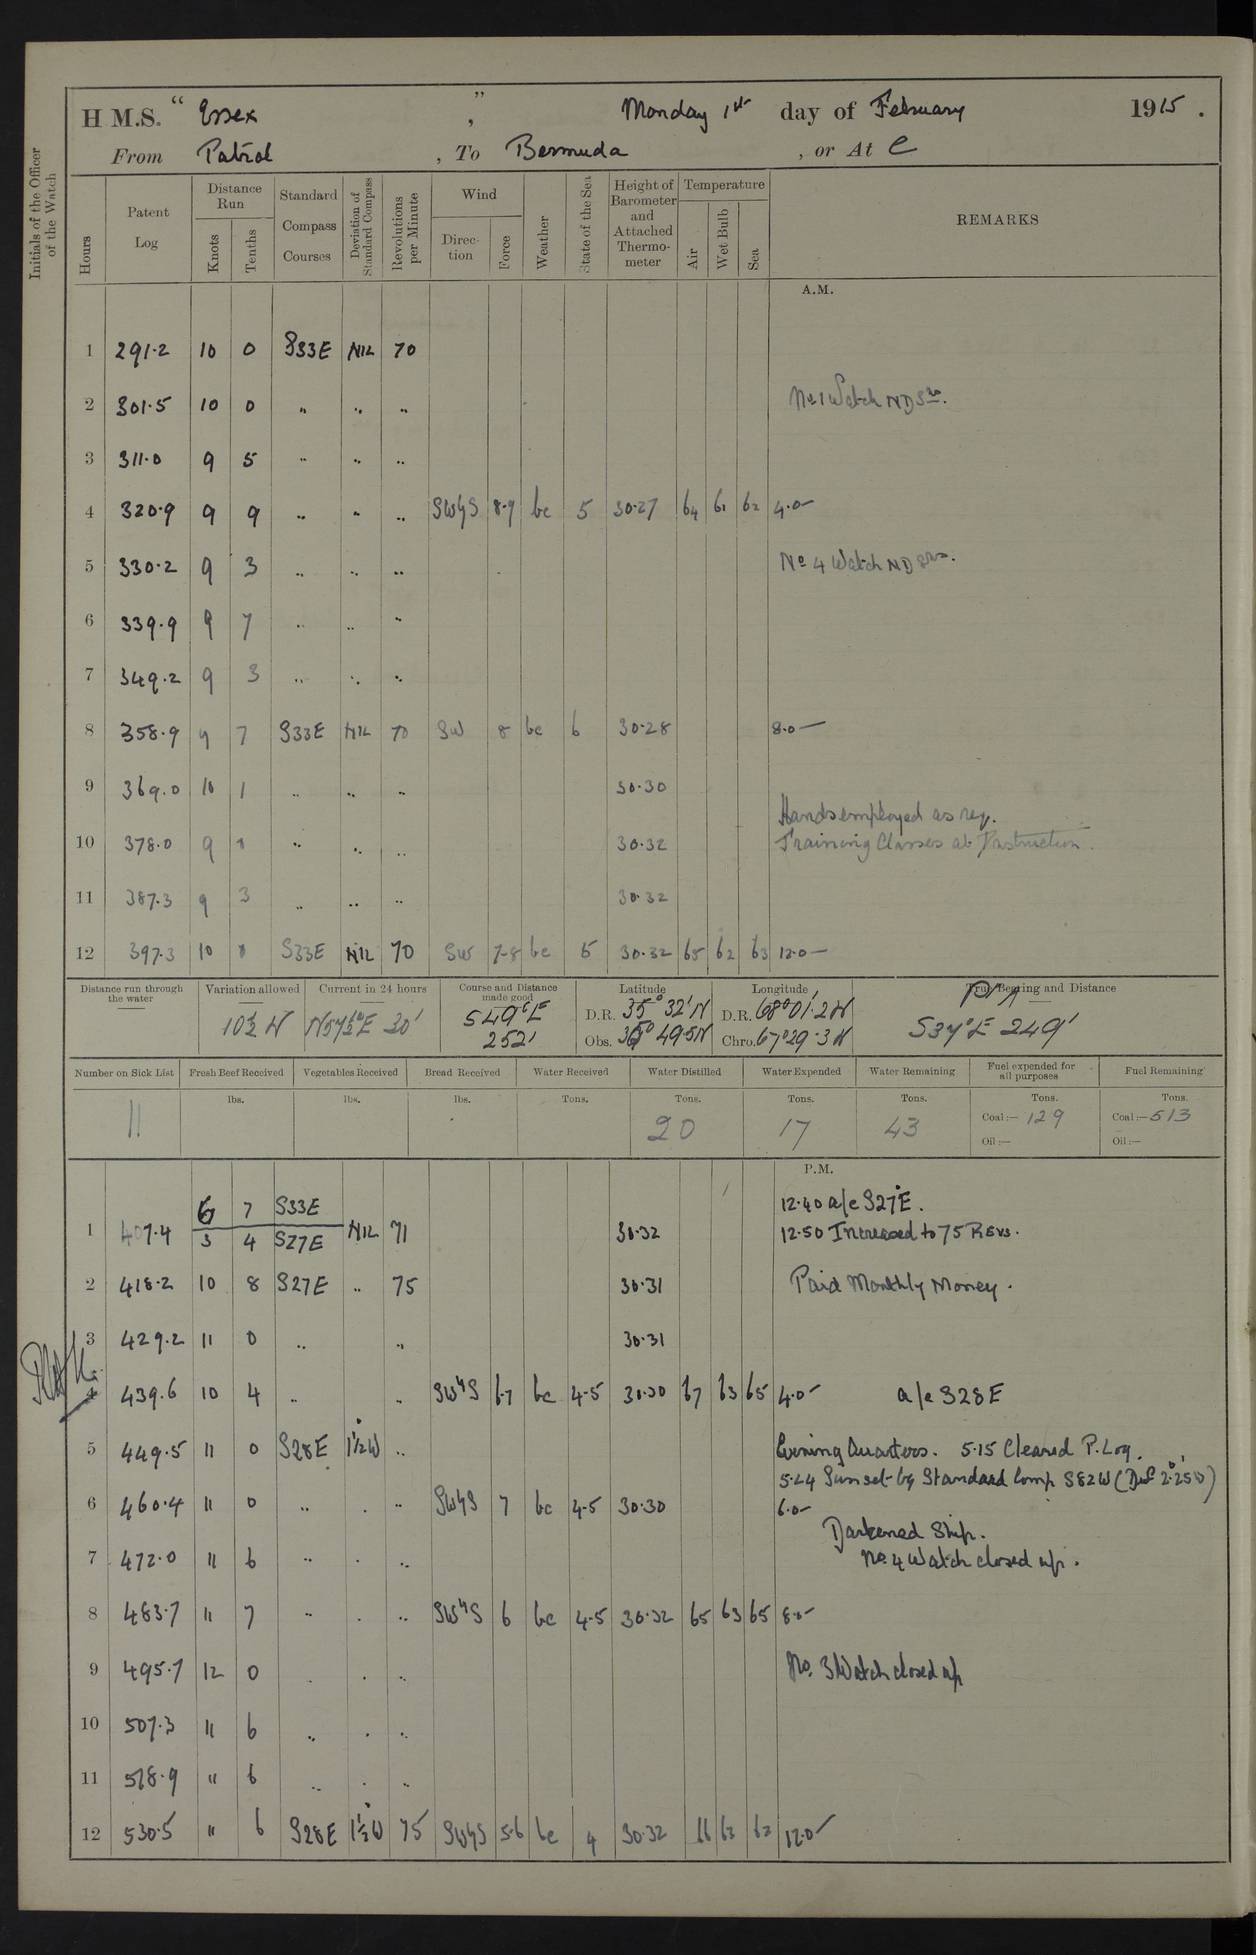 H.M.S. "Essex", Monday 1st day of February 1915.
From Patrol, To Bermuda, or At
Initials of the Officer of the Watch
Hours Patent Log Distance Run Knots Tenths Standard Compass Courses Deviation of Standard Compass Revolutions per Minute Wind Direction Force Weather State of the Sea Height of Barometer and Attached Thermometer Temperature Air Wet Bulb Sea REMARKS
A.M.
1 291.2 10 0 S33E NIL 70
2 301.5 10 0 " " " No 1 Watch ND Stns.
3 311.0 9 5 " " "
4 320.9 9 9 " " " SWyS 8.9 bc 5 30.27 64 61 62 4.0—
5 330.2 9 3 " " " No 4 Watch ND Stns.
6 339.9 9 7 " " "
7 349.2 9 3 " " "
8 358.9 9 7 S33E NIL 70 SW 8 bc 6 30.28 8.0—
9 369.0 10 1 " " " 30.30
Hands employed as req.
10 378.0 9 0 " " " 30.32 Training Classes at Instruction.
11 387.3 9 3 " " " 30.32
12 397.3 10 0 S33E NIL 70 SW 7-8 bc 5 30.32 65 62 63 12.0—
Distance run through the water Variation allowed 10½ W Current in 24 hours N57½°E 30' Course and Distance made good S49°E 252' Latitude D.R. 35° 32' N Obs. 35° 49.5N Longitude D.R. 68° 01.2 W Chro. 67° 29.3 W True Bearing and Distance S37°E 249'
Number on Sick List Fresh Beef Received Vegetables Received Bread Received Water Received Water Distilled Water Expended Water Remaining Fuel expended for all purposes Fuel Remaining
lbs. lbs. lbs. Tons. Tons. Tons. Tons. Tons. Tons.
11 20 17 43 Coal:— 129 Coal:— 513
Oil:— Oil:—
P.M.
6 7 S33E 12.40 a/c S27°E.
1 407.4 3 4 S27E NIL 71 30.32 12.50 Increased to 75 Revs.
2 418.2 10 8 S27E " 75 30.31 Paid Monthly Money.
3 429.2 11 0 " " 30.31
4 439.6 10 4 " " SWyS 6.7 bc 4-5 30.30 67 63 65 4.0— a/c S28E
5 449.5 11 0 S28E 1½°W " Evening Quarters. 5.15 Cleared P. Log.
5.24 Sunset by Standard Comp S82W (Def 2°.25W)
6 460.4 11 0 " " " SWyS 7 bc 4-5 30.30 6.0—
Darkened Ship.
7 472.0 11 6 " " " No. 4 Watch closed up.
8 483.7 11 7 " " " SWyS 6 bc 4-5 30.32 65 63 65 8.0—
9 495.7 12 0 " " " No. 3 Watch closed up
10 507.3 11 6 " " "
11 518.9 " 6 " " "
12 530.5 " 6 S28E 1½°W 75 SWyS 5.6 bc 4 30.32 66 63 62 12.0—